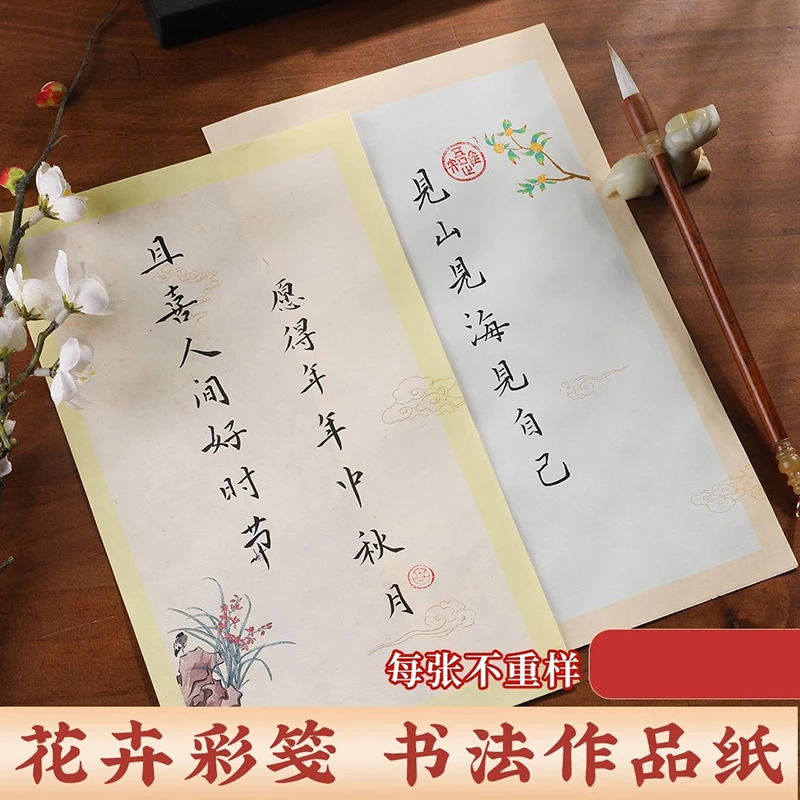 且喜人间好时节
愿得年年中秋月
見山見海見自己
每张不重样
花卉彩笺 书法作品纸